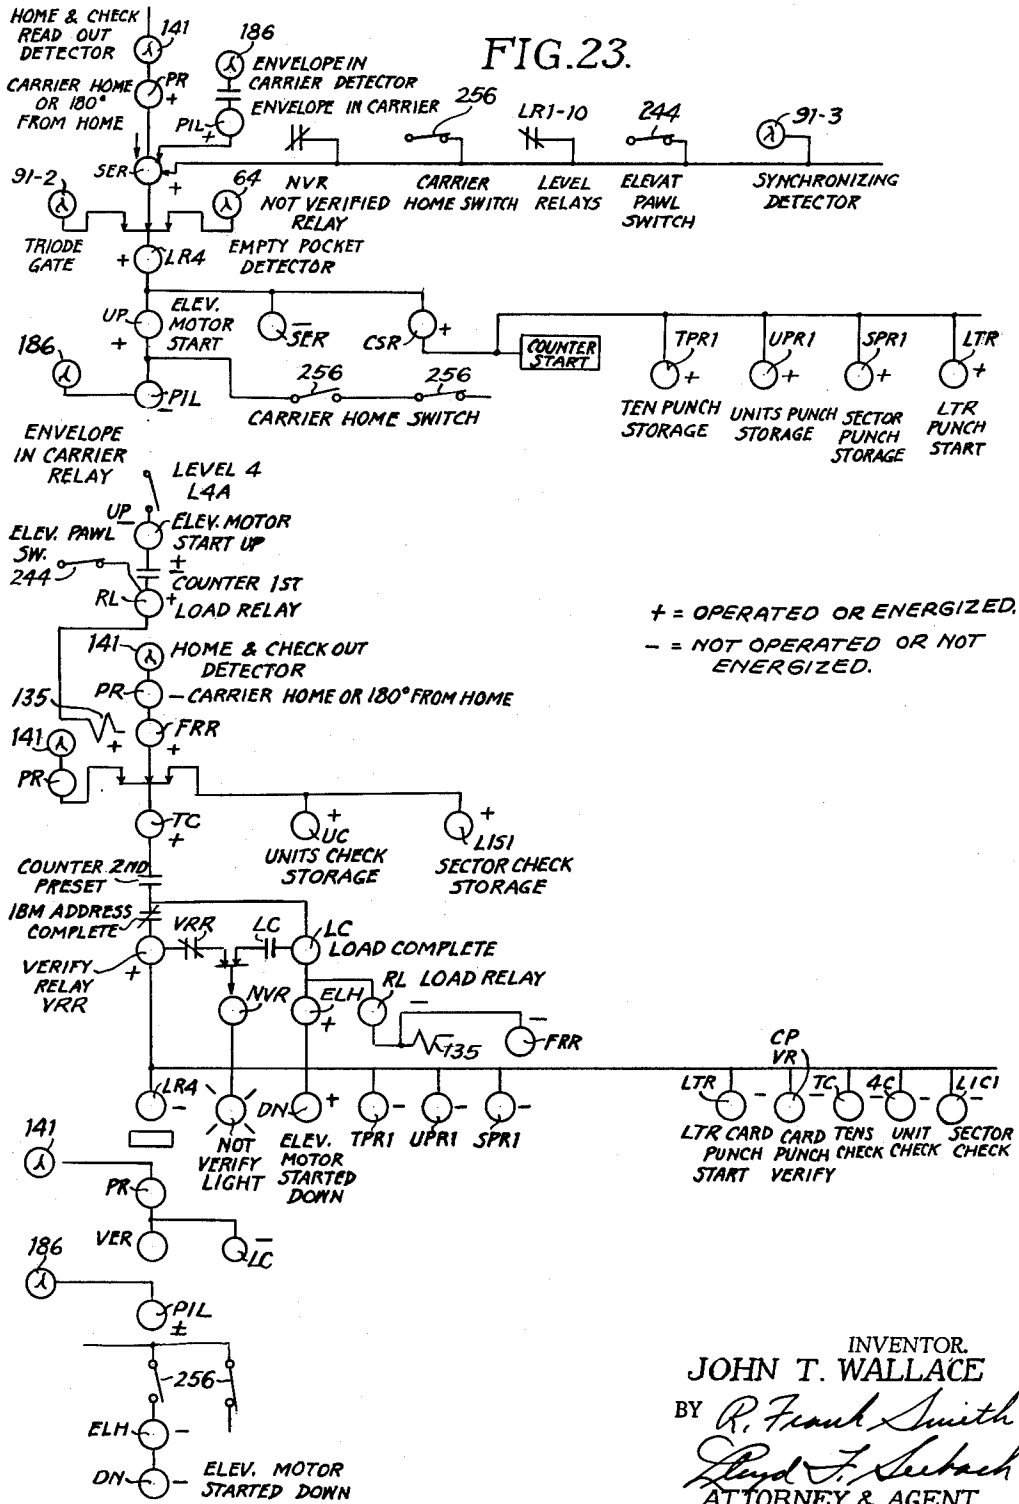 FIG.23.
HOME & CHECK
READ OUT
DETECTOR
141
186
λ
λ
ENVELOPE IN
CARRIER DETECTOR
CARRIER HOME
OR 180°
FROM HOME
PR
+
ENVELOPE IN CARRIER
PIL
+
256
LR1-10
244
91-3
λ
SER
+
91-2
λ
64
λ
NVR
NOT VERIFIED
RELAY
CARRIER
HOME SWITCH
LEVEL
RELAYS
ELEVAT
PAWL
SWITCH
SYNCHRONIZING
DETECTOR
TRIODE
GATE
+
LR4
EMPTY POCKET
DETECTOR
UP
+
ELEV.
MOTOR
START
−
SER
CSR
+
COUNTER
START
TPR1
+
UPR1
+
SPR1
+
LTR
+
186
λ
PIL
−
256
256
CARRIER HOME SWITCH
TEN PUNCH
STORAGE
UNITS PUNCH
STORAGE
SECTOR
PUNCH
STORAGE
LTR
PUNCH
START
ENVELOPE
IN CARRIER
RELAY
LEVEL 4
L4A
UP
−
ELEV. MOTOR
START UP
ELEV. PAWL
SW.
244
±
COUNTER 1ST
LOAD RELAY
RL
+
+ = OPERATED OR ENERGIZED.
− = NOT OPERATED OR NOT
ENERGIZED.
141
λ
HOME & CHECK OUT
DETECTOR
PR
− CARRIER HOME OR 180° FROM HOME
135
+
FRR
+
141
λ
PR
TC
+
+
UC
UNITS CHECK
STORAGE
+
L1S1
SECTOR CHECK
STORAGE
COUNTER 2ND
PRESET
IBM ADDRESS
COMPLETE
VRR
LC
LC
LOAD COMPLETE
VERIFY
RELAY
VRR
+
NVR
ELH
+
RL LOAD RELAY
−
135
−
FRR
LR4
−
NOT
VERIFY
LIGHT
DN
+
ELEV.
MOTOR
STARTED
DOWN
−
TPR1
−
UPR1
−
SPR1
LTR
−
LTR CARD
PUNCH
START
CP
VR
−
CARD
PUNCH
VERIFY
TC
−
TENS
CHECK
4C
−
UNIT
CHECK
L1C1
−
SECTOR
CHECK
141
λ
PR
VER
−
LC
186
λ
PIL
±
256
ELH
−
DN
−
ELEV. MOTOR
STARTED DOWN
INVENTOR.
JOHN T. WALLACE
BY R. Frank Smith
Lloyd F. Seebach
ATTORNEY & AGENT